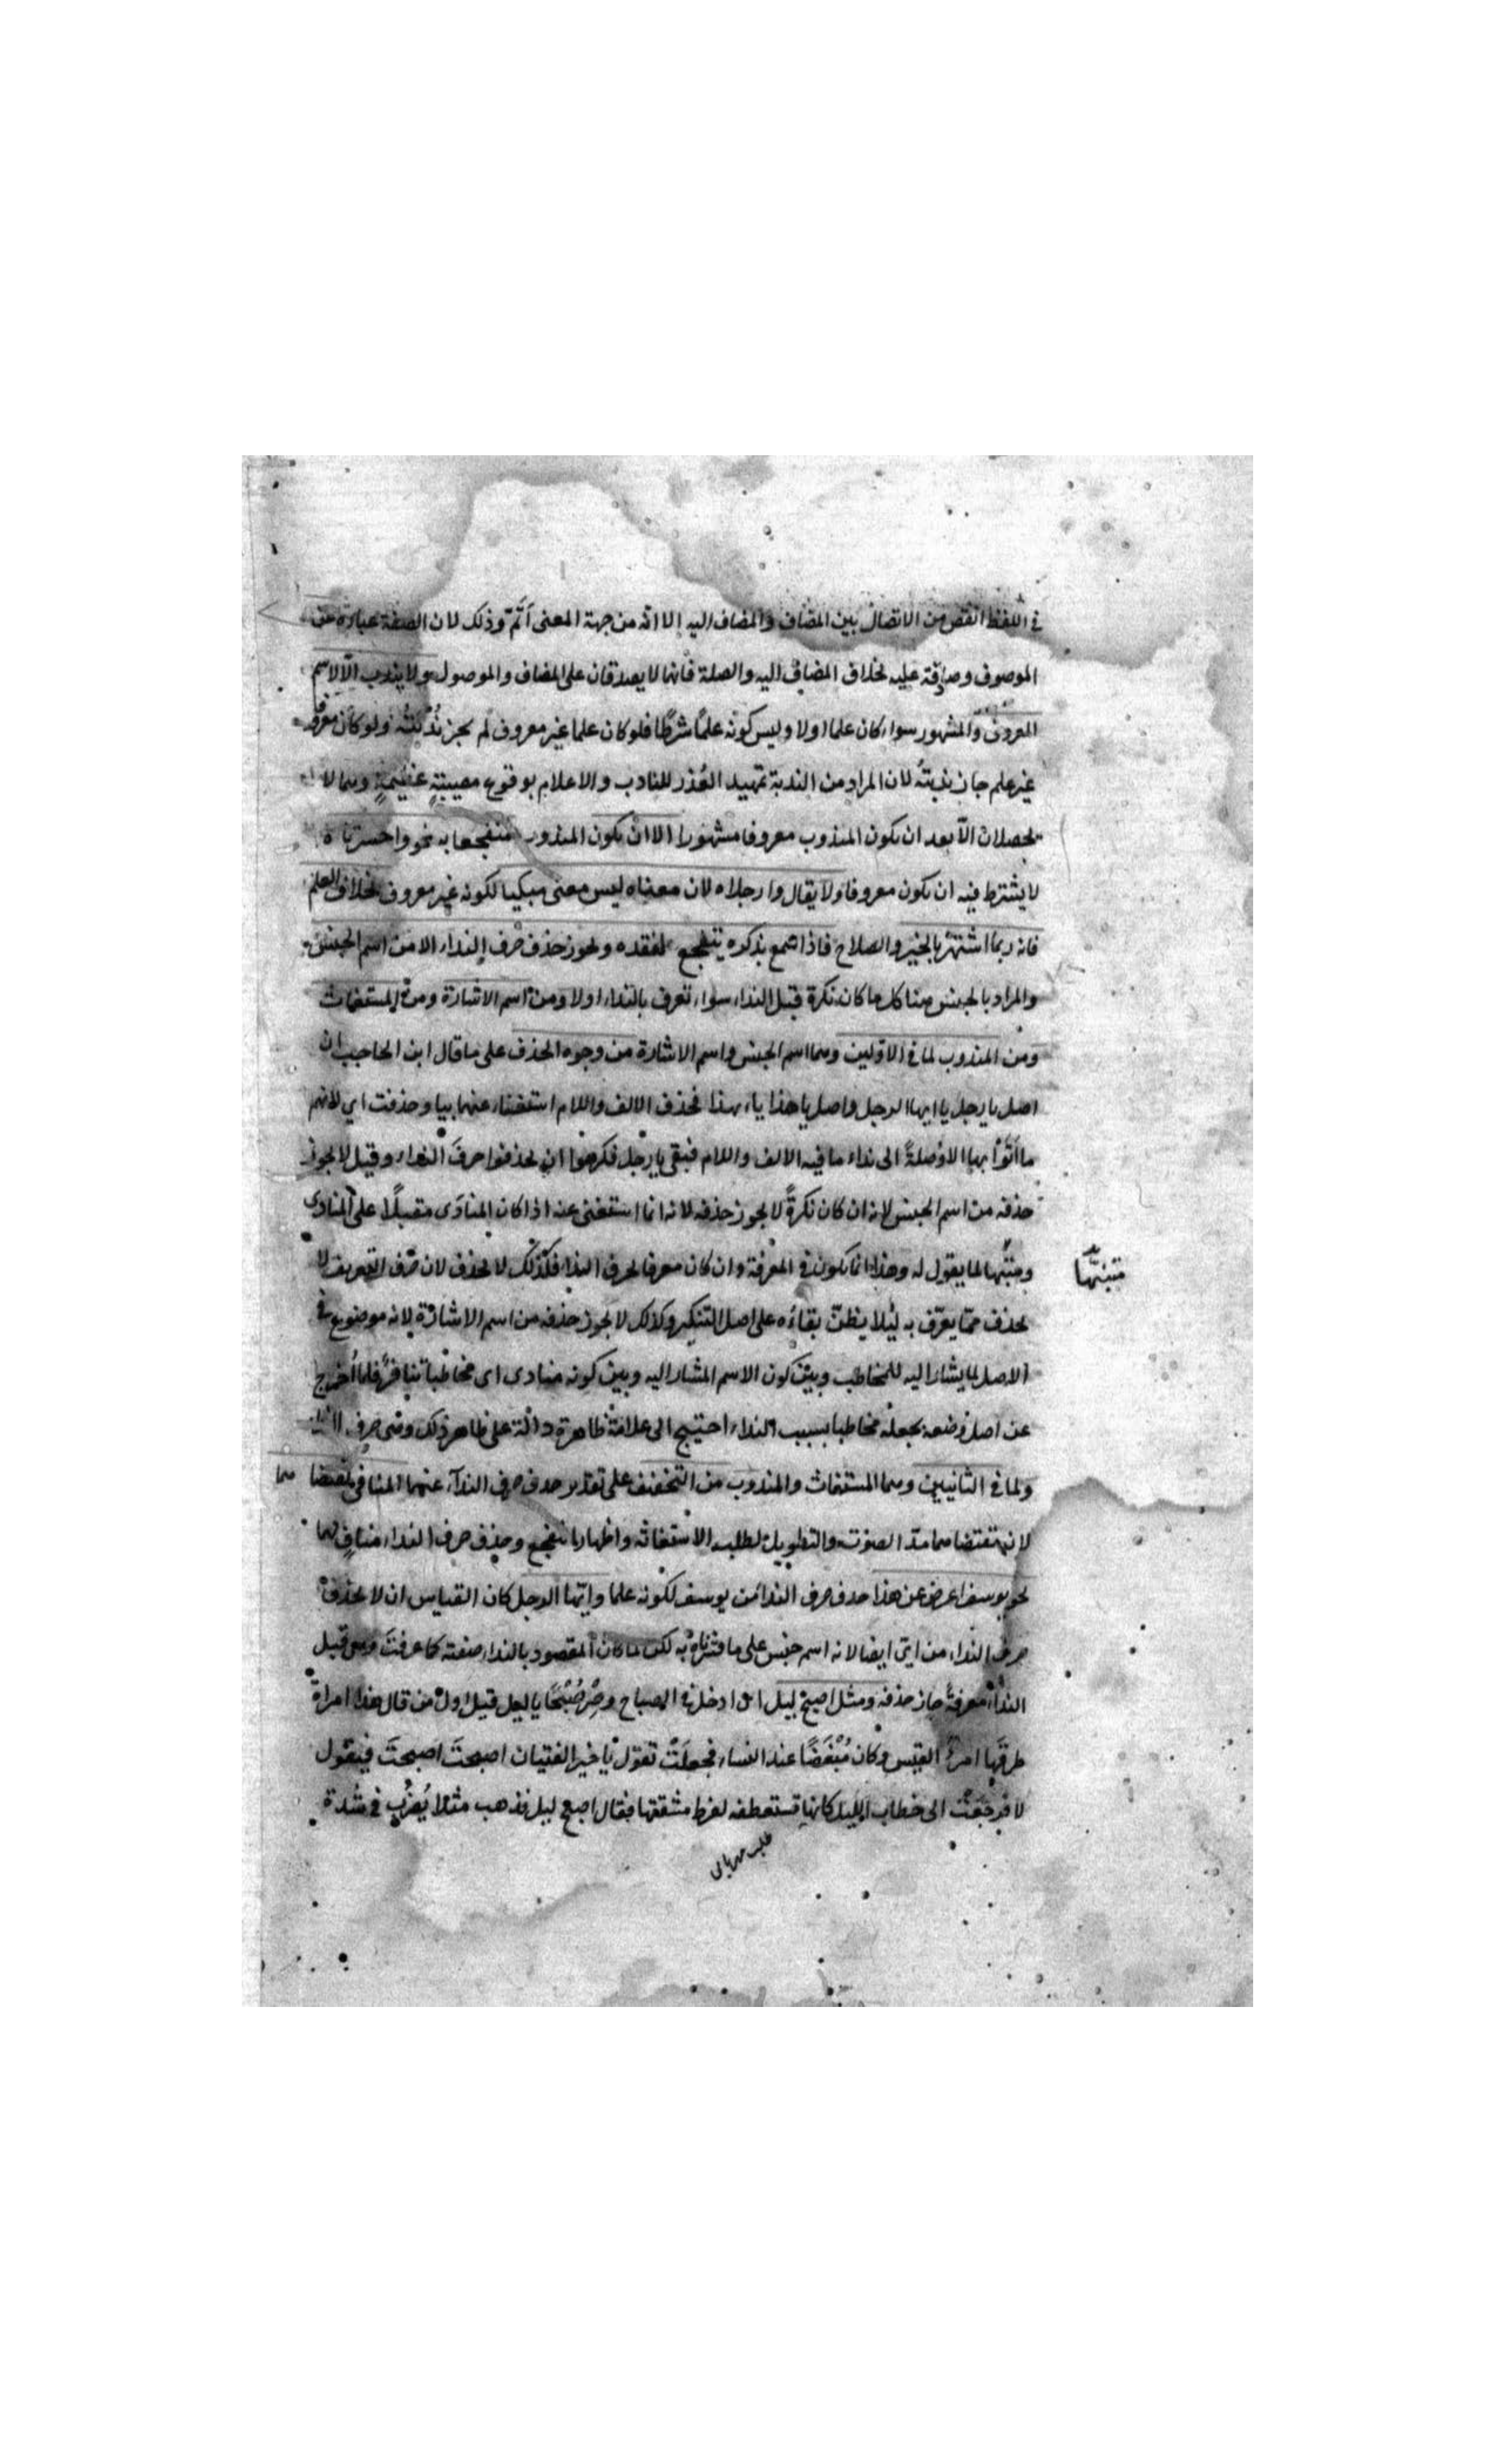 في اللفظ انقص من الاتصال بين المضاف والمضاف اليه الا انه من جهة المعنى اتمّ وذلك لان الصفة عبارة عن
الموصوف وصادقة عليه بخلاف المضاف اليه والصلة فانهما لا يصدقان على المضاف والموصول ولا يندب الّا الاسم
المعروف والمشهور سواء كان علما اولا وليس كونه علمًا شرطًا فلو كان علما غير معروف لم يجز نُدْبَتُه ولو كان معروفا
غير علم جاز ندبتُه لان المراد من الندبة تمهيد العُذر للنادب والاعلام بوقوع مصيبةٍ عظيمةٍ وهما لا
يحصلان الّا بعد ان يكون المندوب معروفا مشهورا الا ان يكون المندوب متفجعا به نحو واحسرتاه
لا يشترط فيه ان يكون معروفا ولا يقال وا رجلاه لان معناه ليس معنى مبكيا لكونه غير معروف بخلاف العلم
فانه ربما اشتهر بالخير والصلاح فاذا سمع بذكره يتفجع لفقده ويجوز حذف حرف النداء الا من اسم الجنس
والمراد بالجنس هنا كل ما كان نكرة قبل النداء سواء تعرف بالنداء اولا ومن اسم الاشارة ومن المستغاث
ومن المندوب لما في الاوّلين وهما اسم الجنس واسم الاشارة من وجوه الحذف على ما قال ابن الحاجب ان
اصل يا رجل يا ايها الرجل واصل يا هذا يا ايهذا فحذف الالف واللام استغناء عنهما بيا وحذفت اي لانهم
ما اَتَوْا بها الا وُصلةً الى نداء ما فيه الالف واللام فبقي يا رجل فكرهوا ان يحذفوا حرفَ النداء وقيل لا يجوز
حذفه من اسم الجنس لانه ان كان نكرةً لا يجوز حذفه لانه انما استغنى عنه اذا كان المنادَى متقبلًا على المنادِي
ومتنبّها لما يقول له وهذا انما يكون في المعرفة وان كان معرفا بحرف النداء فكذلك لا يحذف لان حرف التعريف لا
متنبهًا
يحذف ممّا يعرّف به لئلا يظنّ بقاءُه على اصل التنكير وكذلك لا يجوز حذفه من اسم الاشارة لانه موضوع في
الاصل لما يشار اليه للمخاطب وبين كون الاسم المشار اليه وبين كونه منادى اى مخاطبا تنافرٌ فلما اُخرج
عن اصل وضعه بجعله مخاطبا بسبب النداء احتيج الى علامة ظاهرة دالّة على ظاهر ذلك وهى حرف النداء
ولما في الثانيين وهما المستغاث والمندوب من التخفيف على تقدير حذف حرف النداء عنهما المنافى لمقتضاهما
لان مقتضاهما مدّ الصوت والتطويل لطلب الاستغاثة واظهار التفجع وحذف حرف النداء منافٍ لهما
نحو يوسف اعرض عن هذا حذف حرف النداء من يوسف لكونه علما وايّها الرجل كان القياس ان لا يحذف
حرف النداء من اىّ ايضا لانه اسم جنس على ما فسّرناه به لكن لما كان المقصود بالنداء صفته كما عرفتَ وهى قبل
النداء معرفةً جاز حذفه ومثل اصبح ليل اى ادخل في الصباح وصِرْ صُبْحًا يا ليل قيل اول من قال هذا امراةٌ
طرقَها امرؤ القيس وكان مُبْغَضًا عند النساء فجعلَتْ تقول يا خير الفتيان اصبحتَ اصبحتَ فيقول
لا فرجَعَتْ الى خطاب الليل كانها تستعطفه لفرط مشقتها فقال اصبح ليل فذهب مثلا يُضْرَب في شدة
طلب مهربانى